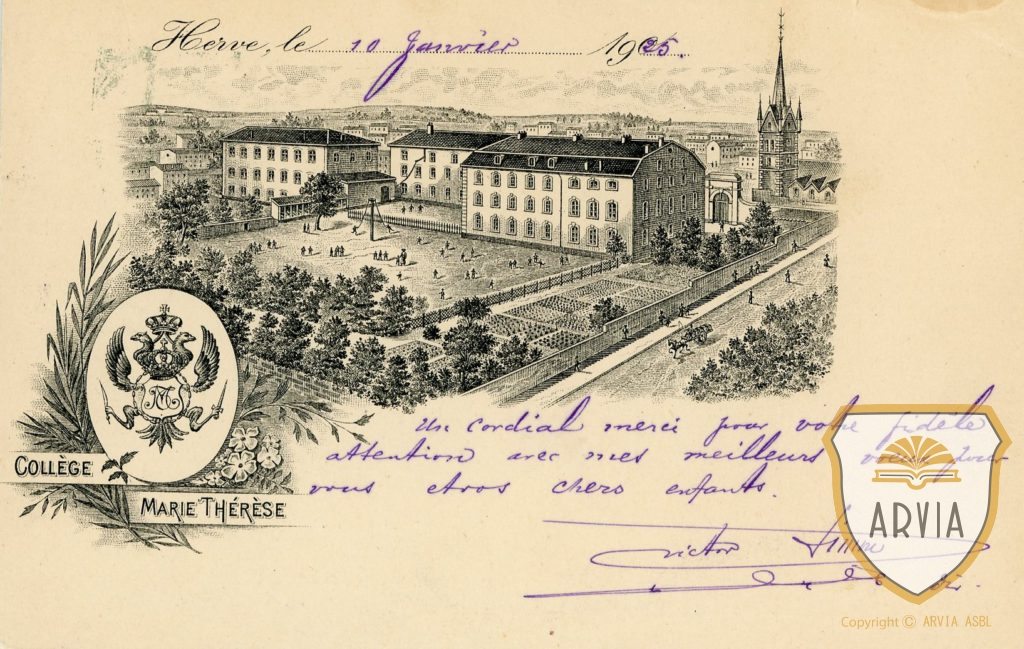 Herve, le 10 Janvier 1925.
COLLÈGE
MARIE THÉRÈSE
Un cordial merci pour votre fidèle
attention avec mes meilleurs voeux pour
vous et vos chers enfants.
Victor
ARVIA
Copyright © ARVIA ASBL